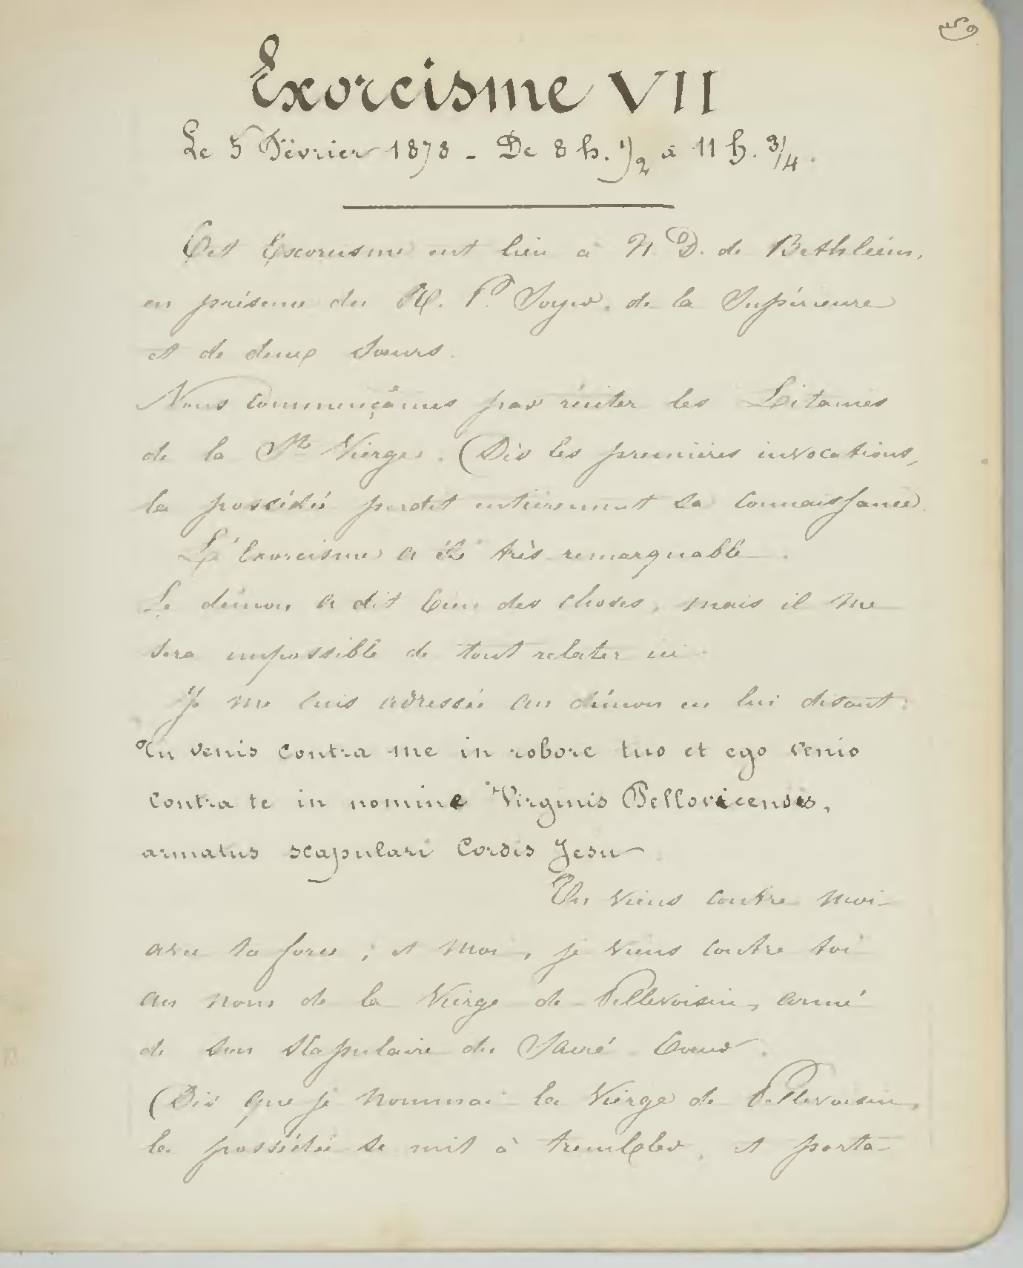 59
Exorcisme VII
Le 5 Février 1878 - De 8 h. 1/2 à 11 h. 3/4.
Cet Exorcisme eut lieu à N. D. de Bethléem,
en présence du R. P. de la Supérieure
et de deux sœurs.
Nous commençâmes par réciter les Litanies
de la Ste Vierge. (Dès les premières invocations,
la possédée perdit entièrement sa connaissance.
L'Exorcisme a été très remarquable.
Le démon a dit bien des choses, mais il me
sera impossible de tout relater ici.
Je me suis adressée au démon en lui disant:
Tu venis contra me in robore tuo et ego venio
contra te in nomine Virginis Pellovicensis,
armatus scapulari Cordis Jesu
Tu viens contre moi
avec ta force; et moi, je viens contre toi
au nom de la Vierge de Pellevoisin, armé
de son scapulaire du Sacré-Cœur.
(Dès que je nommai la Vierge de Pellevoisin,
la possédée se mit à trembler, et porta